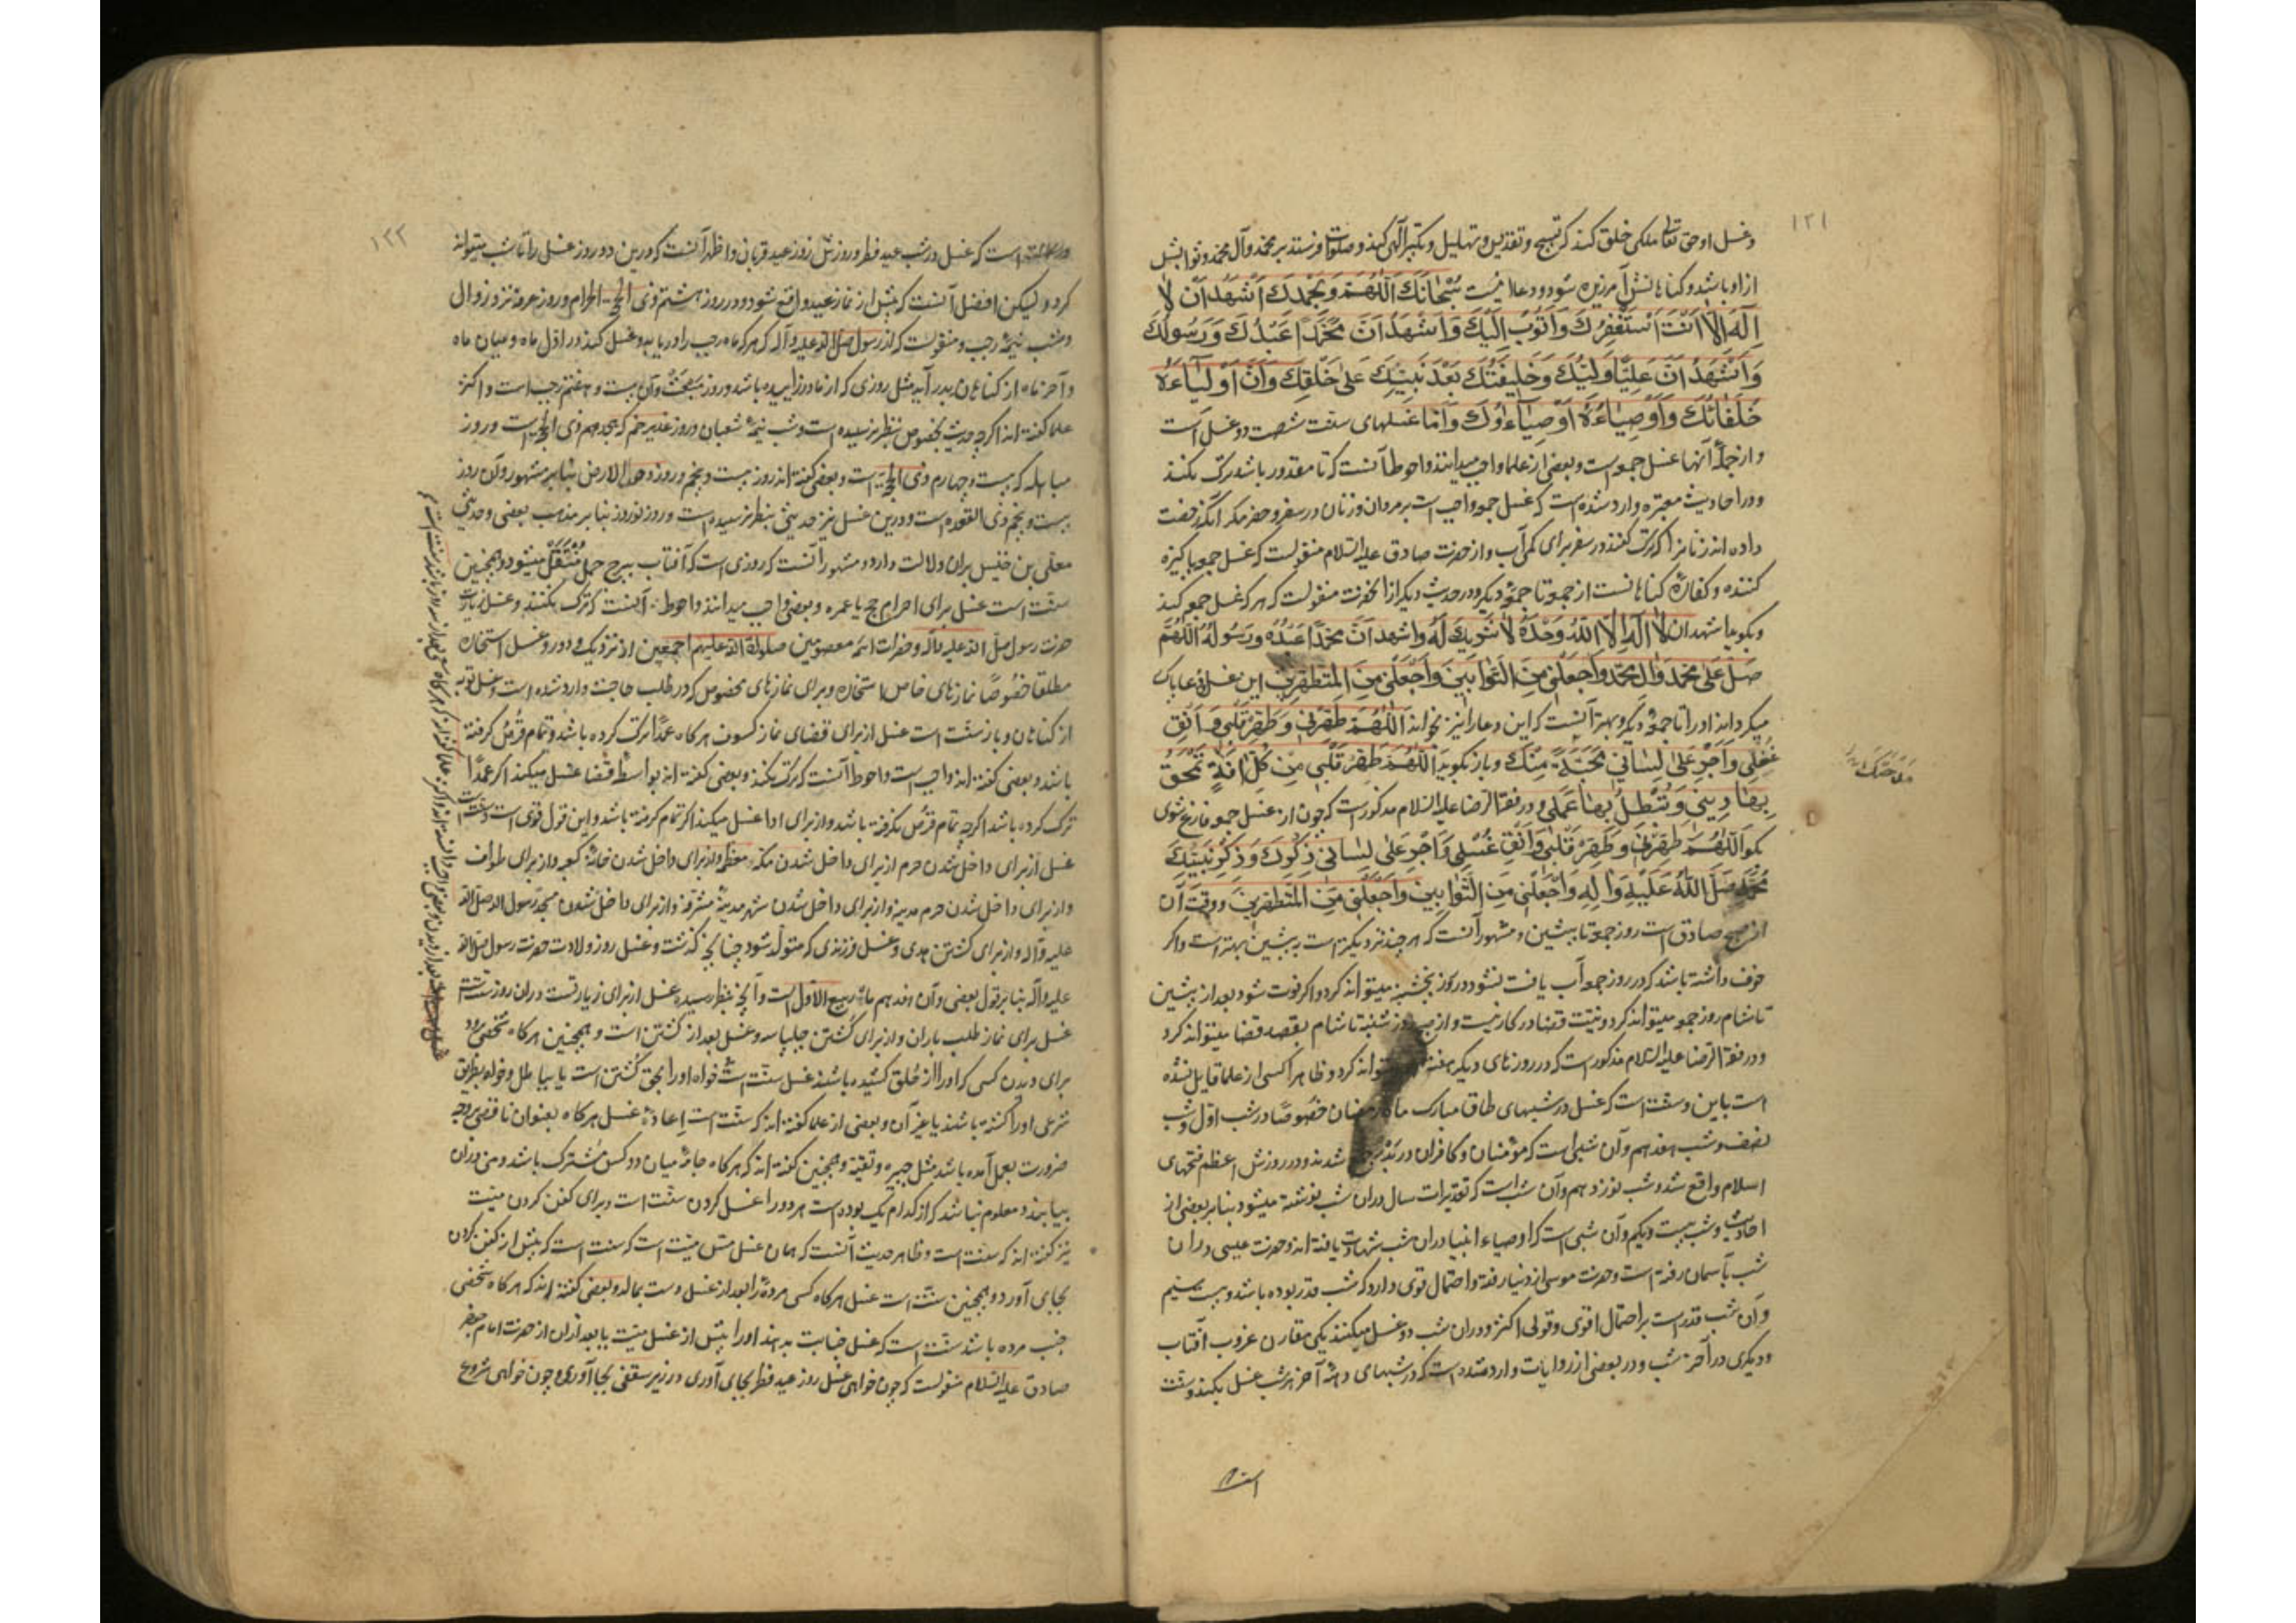 ۱۲۱
وغسل او حق تعالی ملکی خلق کند که تسبیح و تقدیس و تهلیل و تکبیر الهی کند و صلوات فرستد بر محمد و آل محمد و ثوابش
ازو باشد و کناهانش آمرزیده شود و دعا اینست سُبْحَانَكَ اَللّهُمَّ وَبِحَمْدِكَ اَشْهَدُ اَنْ لَا
اِلَهَ اِلَّا اَنْتَ اَسْتَغْفِرُكَ وَاَتُوبُ اِلَيْكَ وَاَشْهَدُ اَنَّ مُحَمَّدًا عَبْدُكَ وَرَسُولُكَ
وَاَشْهَدُ اَنَّ عَلِيًّا وَلِيُّكَ وَخَلِيفَتُكَ بَعْدَ نَبِيِّكَ عَلٰى خَلْقِكَ وَاَنَّ اَوْلِيَاءَهُ
خُلَفَائُكَ وَاَوْصِيَاءَهُ اَوْصِيَاءُوكَ و اما غسلهای سنت شصت و دو غسل است
و از جملهٔ آنها غسل جمعه است و بعضی از علما واجب میدانند و احوط آنست که تا مقدور باشد ترک نکنند
و در احادیث معتبره وارد شده است که غسل جمعه واجب است بر مردان و زنان در سفر و حضر مکر آنکه رخصت
داده اند زنانرا که ترک کنند در سفر برای کمی آب و از حضرت صادق علیه السلام منقولست که غسل جمعه پاکیزه
کننده و کفارهٔ کناهانست از جمعه تا جمعهٔ دیکر و در حدیث دیکر از آنحضرت منقولست که هر که غسل جمعه کند
و بکوید اشهد ان لَا اِلَهَ اِلَّا اللّهُ وَحْدَهُ لَا شَرِيكَ لَهُ وَاشهد اَنَّ مُحَمَّدًا عَبْدُهُ وَرَسُولُهُ اَللّهُمَّ
صَلِّ عَلٰى مُحَمَّدٍ وَآلِ مُحَمَّدٍ وَاجْعَلْنِي مِنَ التَّوَّابِينَ وَاجْعَلْنِي مِنَ الْمُتَطَهِّرِينَ این غسل و دعا پاک
میکرداند او را تا جمعهٔ دیکر و بهتر آنست که این دعا را نیز بخواند اَللّهُمَّ طَهِّرْنِي وَطَهِّرْ قَلْبِي وَاَنْقِ
غُسْلِي وَاَجْرِ عَلٰى لِسَانِي مِنْكَ و باز بکوید اَللّهُمَّ طَهِّرْ قَلْبِي مِنْ كُلِّ اٰفَةٍ تَمْحَقُ
بِهَا دِينِي وَتُبْطِلُ بِهَا عَمَلِي و در فقه الرضا علیه السلام مذکور است که چون از غسل جمعه فارغ شوی
بکو اَللّهُمَّ طَهِّرْنِي وَطَهِّرْ قَلْبِي وَاَنْقِ غُسْلِي وَاَجْرِ عَلٰى لِسَانِي ذِكْرَكَ وَذِكْرَ نَبِيِّكَ
مُحَمَّدٍ صَلَّى اللّهُ عَلَيْهِ وَاٰلِهِ وَاجْعَلْنِي مِنَ التَّوَّابِينَ وَاجْعَلْنِي مِنَ الْمُتَطَهِّرِينَ و وقت آن
از صبح صادق است روز جمعه تا پیشین و مشهور آنست که هر چند نزدیکتر است به پیشین بهتر است و اکر
خوف داشته باشد که در روز جمعه آب یافت نشود در روز پنجشنبه میتواند کرد و اکر فوت شود بعد از پیشین
تا شام روز جمعه میتواند کرد و نیت قضا در کار نیست و از صبح روز شنبه تا شام بقصد قضا میتواند کرد
و در فقه الرضا علیه السلام مذکور است که در روزهای دیکر هفته میتواند کرد و ظاهرا کسی از علما قایل نشده
است باین و سنت است که غسل در شبهای طاق مبارک ماه رمضان خصوصًا در شب اول و شب
نصف و شب هفدهم و آن شبی است که مؤمنان و کافران در بدر جمع شدند و در روزش اعظم فتحهای
اسلام واقع شد و شب نوزدهم و آن شب است که تقدیرات سال در ان شب نوشته میشود بنا بر بعضی از
احادیث و شب بیست و یکم و آن شبی است که اوصیاء انبیا در ان شب شهادت یافته اند و حضرت عیسی در ان
شب بآسمان رفته است و حضرت موسی از دنیا رفته و احتمال قوی دارد که شب قدر بوده باشد و بیست سیم
و آن شب قدر است بر احتمال اقوی و قولی اکثر و در ان شب دو غسل میکنند یکی مقارن غروب آفتاب
و دیکری در آخر شب و در بعضی از روایات وارد شده است که در شبهای دههٔ آخر هر شب غسل بکنند و سنت
است
۱۲۲
است که غسل در شب عید فطر و روزش روز عید قربان و اظهر آنست که درین دو روز غسل را تا شب میتواند
کرد و لیکن افضل آنست که پیش از نماز عید واقع شود و در روز هشتم ذی الحجة الحرام و روز عرفه نزد زوال
و شب نیمهٔ رجب و منقولست که از رسول صلی الله علیه و آله که هر که ماه رجب را دریابد و غسل کند در اول ماه و میان ماه
و آخر ماه از کناهان بدر آید مثل روزی که از مادر زاییده باشد و روز مبعث و آن بیست و هفتم رجب است و اکثر
علما کفته اند اکرچه حدیث بخصوص بنظر نرسیده است و شب نیمهٔ شعبان و روز غدیر خم که هجدهم ذی الحجه است و روز
مباهله که بیست و چهارم ذی الحجة است و بعضی کفته اند روز بیست و پنجم و روز دحو الارض بنا بر مشهور و آن روز
بیست و پنجم ذی القعده است و درین غسل نیز حدیثی بنظر نرسیده است و روز نوروز بنا بر مذهب بعضی و حدیث
معلی بن خنیس بران دلالت دارد و مشهور آنست که روزی است که آفتاب ببرج حمل مُنْتَقَل میشود و همچنین
سنت است غسل برای احرام حج یا عمره و بعضی واجب میدانند و احوط آنست که ترک نکنند و غسل زیارت
حضرت رسول صلی الله علیه وآله و حضرات ائمهٔ معصومین صلوات الله علیهم اجمعین از نزدیک و دور و غسل استخاره
مطلقا خصوصًا نمازهای خاص استخاره و برای نمازهای مخصوص که در طلب حاجت وارد شده است و غسل توبه
از کناهان و باز سنت است غسل از برای قضای نماز کسوف هرکاه عمدًا ترک کرده باشد و تمام قرص کرفته
باشد و بعضی کفته اند واجب است و احوط آنست که ترک نکند و بعضی کفته اند بواسطه قضا غسل میکند اکر عمدًا
ترک کرده باشد اکرچه تمام قرص نکرفته باشد و از برای ادا غسل میکند اکر تمام کرفته باشد و این قول قوی است
غسل از برای داخل شدن حرم از برای داخل شدن مکهٔ معظمه و از برای داخل شدن خانهٔ کعبه و از برای طواف
و از برای داخل شدن حرم مدینه و از برای داخل شدن شهر مدینهٔ مشرفه و از برای داخل شدن مسجد رسول الله صلی الله
علیه وآله و از برای کشتن هدی و غسل فرزندی که متولد شود چنانچه کذشت و غسل روز ولادت حضرت رسول صلی الله
علیه وآله بنا بر قول بعضی و آن هفدهم ماه ربیع الاول است و آنچه بنظر رسیده غسل از برای زیارتست در ان روز
غسل برای نماز طلب باران و از برای کشتن چلپاسه و غسل بعد از کشتن است و همچنین هرکاه شخصی رود
برای دیدن کسی که او را از حلق کشیده باشند غسل سنت است خواه او را بحق کشتن است یا بباطل و خواه بطریق
شرعی او را کشته باشند یا غیر آن و بعضی از علما کفته اند که سنت است اعادهٔ غسل هرکاه بعنوان ناقصی بر وجه
ضرورت بعمل آمده باشد مثل جبیره و تقیه و همچنین کفته اند که هرکاه جامهٔ میان دو کس مشترک باشد و منی در ان
بیابند و معلوم نباشد که از کدام یک بوده است هر دو را غسل کردن سنت است و برای کفن کردن میت
نیز کفته اند که سنت است و ظاهر حدیث آنست که همان غسل مس میت است که سنت است که پیش از کفن کردن
بجای آورد و همچنین سنت است غسل هرکاه کسی مردهٔ را بعد از غسل دست بمالد و بعضی کفته اند که هرکاه شخصی
جنب مرده باشد سنت است که غسل جنابت بدهند او را پیش از غسل میت یا بعد ازان از حضرت امام جعفر
صادق علیه السلام منقولست که چون خواهی غسل روز عید فطر بجای آوری در زیر سقفی بجا آوری و چون خواهی شروع